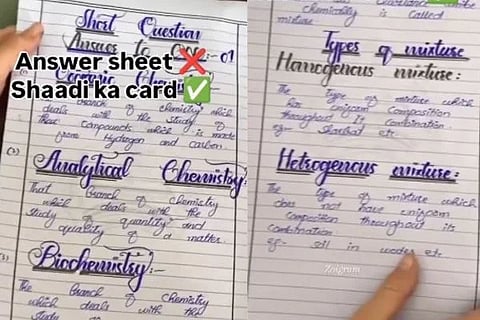 Short Question
Answer to Que:-01
Answer sheet ❌
Shaadi ka card ✅
Organic Chemistry
branch of chemistry which
deals with the study of
that compounds which is made
from hydrogen and carbon.
(2)
Analytical Chemistry:
That branch of chemistry
which deals with the
study of quantity and
quality of a matter.
Biochemistry:-
The branch of chemistry
which deals with the
study of
chemically is called
mixture
Types of mixture
Homogenous mixture:
The type of mixture which
has uniform composition
throughout its combination.
eg- sharbat etc.
Hetrogenous mixture:
The type of mixture which
does not have uniform
composition throughout its
combination
eg- soil in water etc